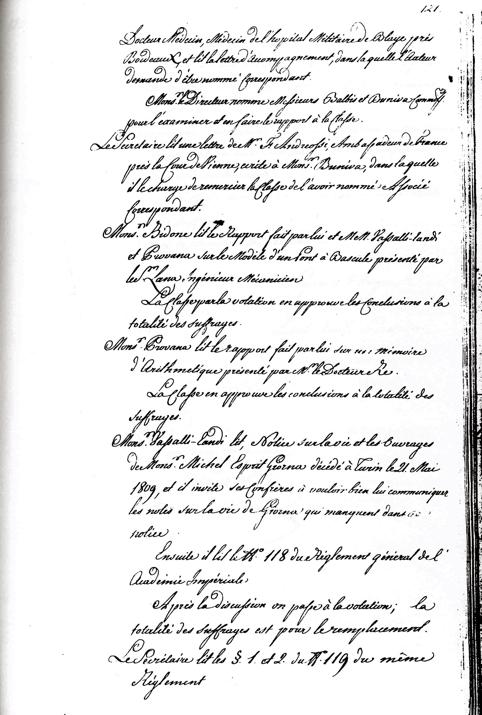 121.
Docteur Médecin, Médecin de l'hopital Militaire de Blaye près
Bordeaux, et lit la lettre d'accompagnement, dans laquelle l'Auteur
demande d'être nommé Correspondant.
Mons.r le Directeur nomme Messieurs Balbis et Buniva Commiss.
pour l'examiner et en faire le rapport à la Classe.
Le Secrétaire lit une lettre de M.r F. Andreossi, Ambassadeur de France
près la Cour de Vienne, ecrite à Mons.r Buniva, dans laquelle
il le charge de remercier la Classe de l'avoir nommé Associé
Correspondant.
Mons.r Bidone lit le Rapport fait par lui et MM. Vassalli-Landi
et Provana sur le Modèle d'un Pont à Bascule présenté par
le Lana, Ingénieur Mécanicien
La Classe par la votation en approuve les Conclusions à la
totalité des suffrages.
Mons.r Provana lit le rapport fait par lui sur un mémoire
d'Arithmetique présenté par M.r le Docteur Re.
La Classe en approuve les conclusions à la totalité des
suffrages.
Mons.r Vassalli-Landi lit Notice sur la vie et les Ouvrages
de Mons.r Michel Esprit Giorna décédé à Turin le 21 Mai
1809, et il invite ses Confrères à vouloir bien lui communiquer
les notes sur la vie de Giorna qui manquent dans sa
notice
Ensuite il lit le tt.o 118 du Règlement général de l'
Académie Impériale
Après la discussion on passe à la votation; la
totalité des suffrages est pour le remplacement.
Le Secrétaire lit les §. 1. et 2. du tt. 119 du même
Règlement